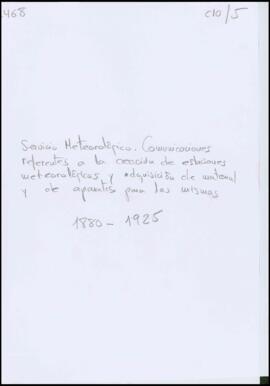 468
C10/5
Servicio Meteorológico. Comunicaciones
referentes a la creación de estaciones
meteorológicas y adquisición de material
y de aparatos para las mismas
1880 - 1925